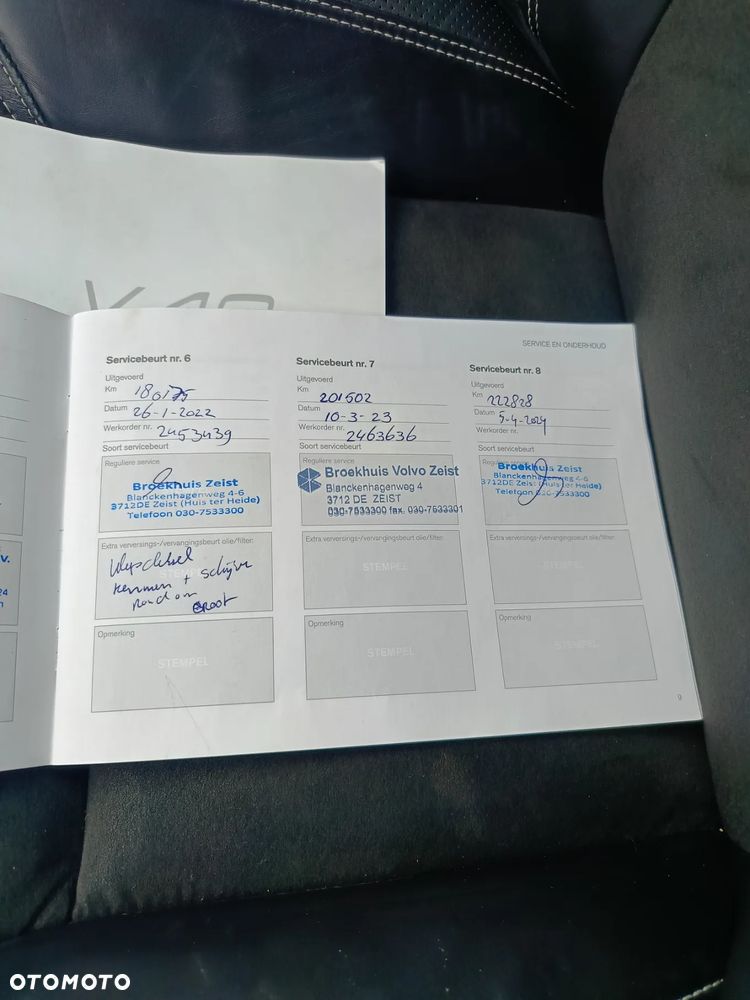 V40
SERVICE EN ONDERHOUD
Servicebeurt nr. 6
Uitgevoerd
Km 180175
Datum 26-1-2022
Werkorder nr. 2453439
Soort servicebeurt
Reguliere service
Broekhuis Zeist
Blanckenhagenweg 4-6
3712DE Zeist (Huis ter Heide)
Telefoon 030-7533300
Extra verversings-/vervangingsbeurt olie/filter:
remmen + schijven
rondom groot
Opmerking
STEMPEL
Servicebeurt nr. 7
Uitgevoerd
Km 201502
Datum 10-3-23
Werkorder nr. 2463636
Soort servicebeurt
Reguliere service
Broekhuis Volvo Zeist
Blanckenhagenweg 4
3712 DE ZEIST
030-7533300 fax. 030-7633301
Extra verversings-/vervangingsbeurt olie/filter:
STEMPEL
Opmerking
STEMPEL
Servicebeurt nr. 8
Uitgevoerd
Km 222828
Datum 5-4-2024
Werkorder nr.
Soort servicebeurt
Reguliere service
Broekhuis Zeist
Blanckenhagenweg 4-6
3712DE Zeist (Huis ter Heide)
Telefoon 030-7533300
Extra verversings-/vervangingsbeurt olie/filter:
STEMPEL
Opmerking
STEMPEL
9
OTOMOTO